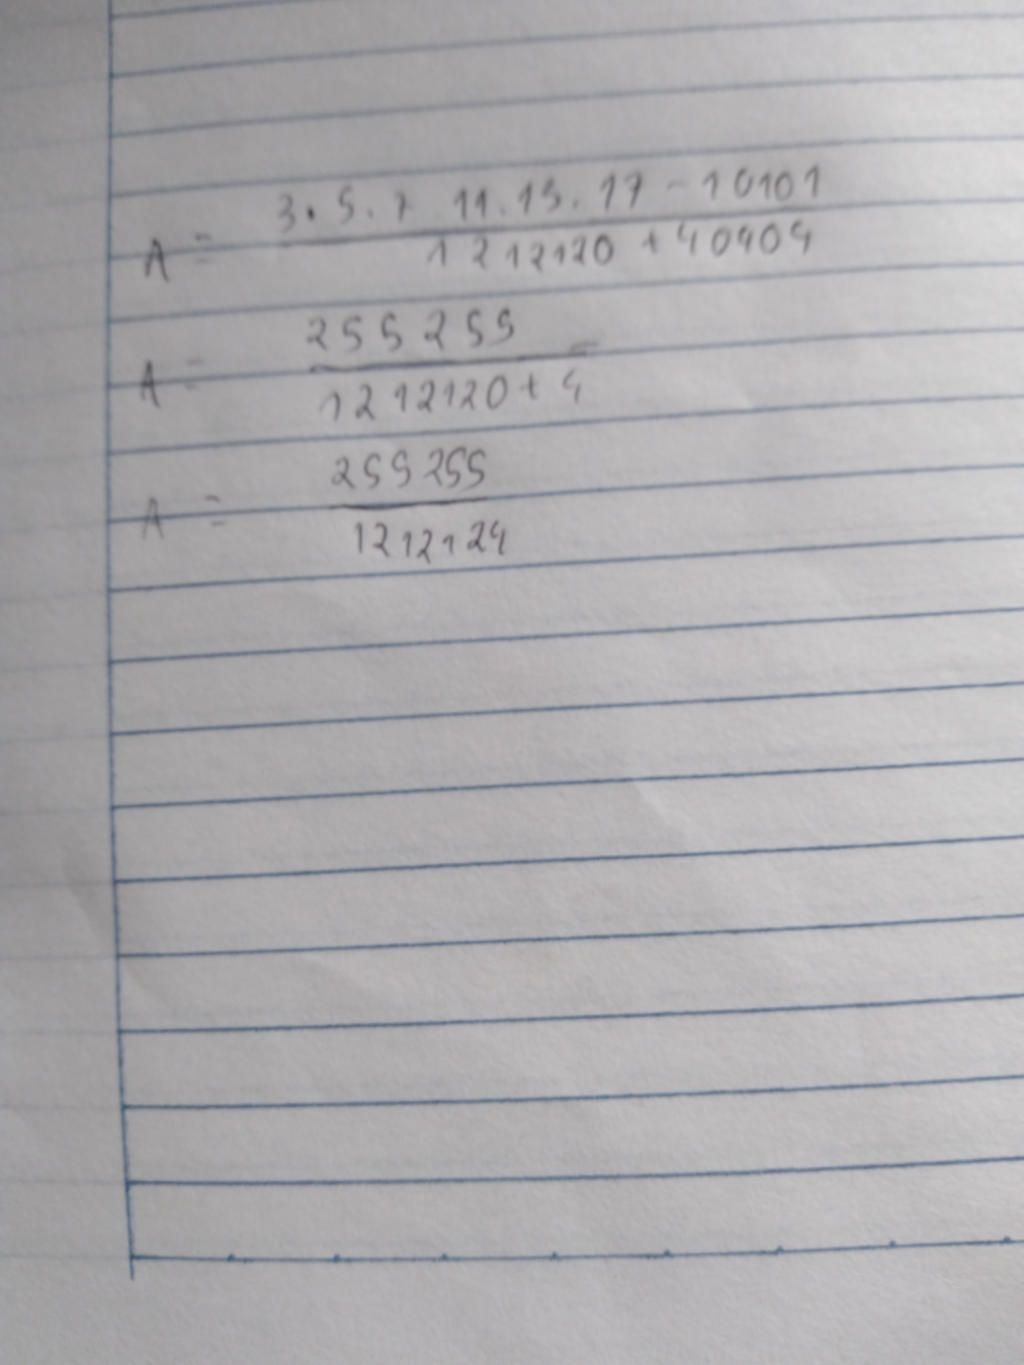 A = 3.5.7 11.13.17 - 10101
1212120 + 40404
A = 255255
1212120 + 4
A = 255255
1212124